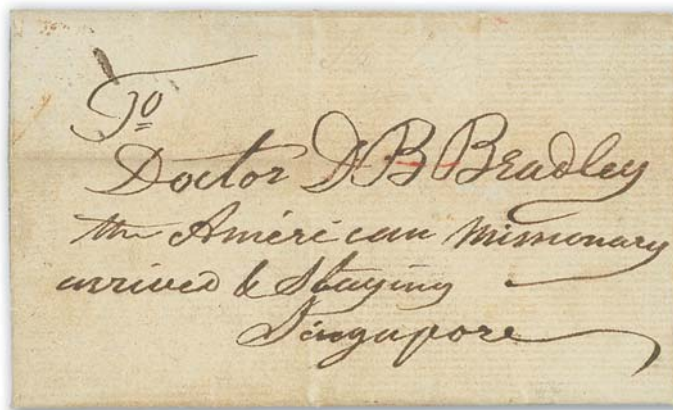 To
Doctor D B Bradley
the Américan Missionary
arrived & Staying
Singapore